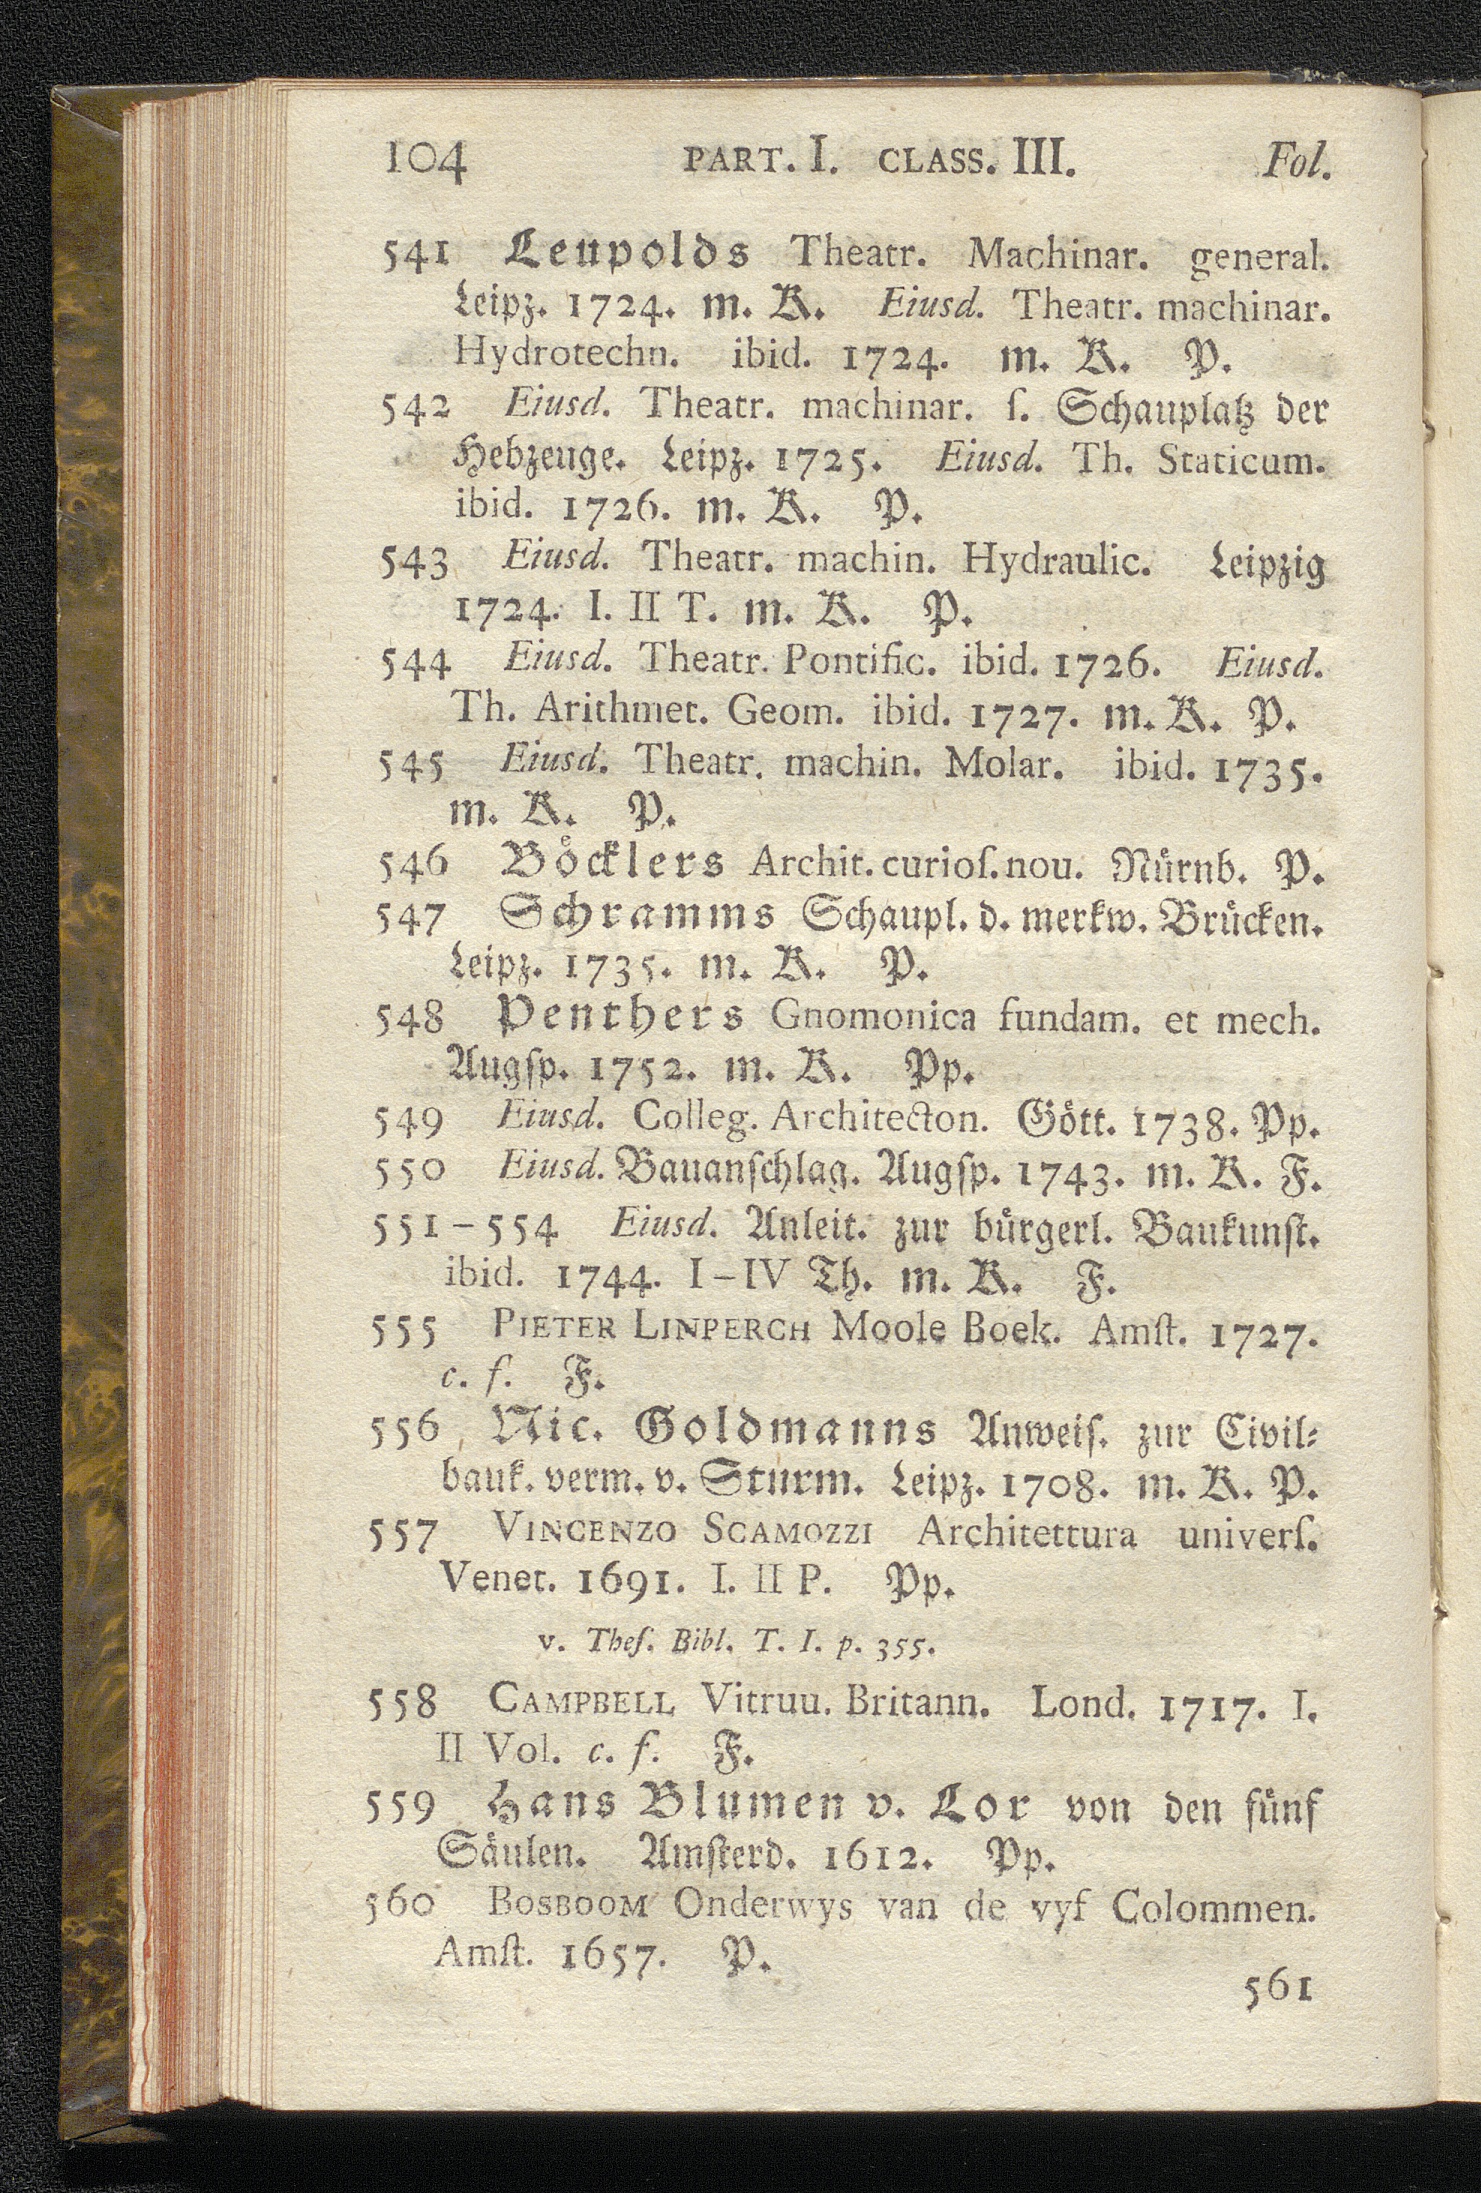 104 PART. I. CLASS. III. Fol.
541 Leupolds Theatr. Machinar. general.
Leipz. 1724. m. K. Eiusd. Theatr. machinar.
Hydrotechn. ibid. 1724. m. K. P.
542 Eiusd. Theatr. machinar. ſ. Schauplatz der
Hebzeuge. Leipz. 1725. Eiusd. Th. Staticum.
ibid. 1726. m. K. P.
543 Eiusd. Theatr. machin. Hydraulic. Leipzig
1724. I. II T. m. K. P.
544 Eiusd. Theatr. Pontific. ibid. 1726. Eiusd.
Th. Arithmet. Geom. ibid. 1727. m. K. P.
545 Eiusd. Theatr. machin. Molar. ibid. 1735.
m. K. P.
546 Böcklers Archit. curioſ. nou. Nürnb. P.
547 Schramms Schaupl. d. merkw. Brücken.
Leipz. 1735. m. K. P.
548 Penthers Gnomonica fundam. et mech.
Augſp. 1752. m. K. Pp.
549 Eiusd. Colleg. Architecton. Gött. 1738. Pp.
550 Eiusd. Bauanſchlag. Augſp. 1743. m. K. F.
551–554 Eiusd. Anleit. zur bürgerl. Baukunſt.
ibid. 1744. I–IV Th. m. K. F.
555 PIETER LINPERCH Moole Boek. Amſt. 1727.
c. f. F.
556 Nic. Goldmanns Anweiſ. zur Civil⸗
bauk. verm. v. Sturm. Leipz. 1708. m. K. P.
557 VINCENZO SCAMOZZI Architettura univerſ.
Venet. 1691. I. II P. Pp.
v. Theſ. Bibl. T. I. p. 355.
558 CAMPBELL Vitruu. Britann. Lond. 1717. I.
II Vol. c. f. F.
559 Hans Blumen v. Lor von den fünf
Säulen. Amſterd. 1612. Pp.
560 BOSBOOM Onderwys van de vyf Colommen.
Amſt. 1657. P.
561